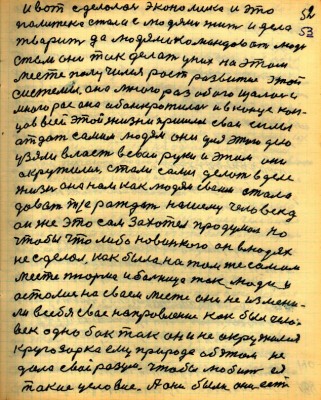 52
53
и вот сделолся экономика и это
политика стала с людями жит и дела
тварит да людями командоват люди
стали они так делат у них на этом
месте получился рост развитие этой
системы, она много раз обогощалос и
много рас она обонкротилос и в конце кон
цов всей этой жизни пришлос свои силы
отдат самим людям они для этого дела
узяли власт в свои руки и этим они
окружилис, стали сами делат в деле
жизн она нам как людям своим стала
дават т/е раждат нашему человека
он же это сам захотел продумал но
чтобы что либо новинкого он в людях
не сделал, как была на том же самом
месте тюрма и болница так люди и
осталис на своем месте они не измени-
ли в себя свае направление как был чило-
век одно бок так он и не окружился
кругозорка ему природа об этом не
дала свой разум чтобы любит ее
такие условие. А они были они ест